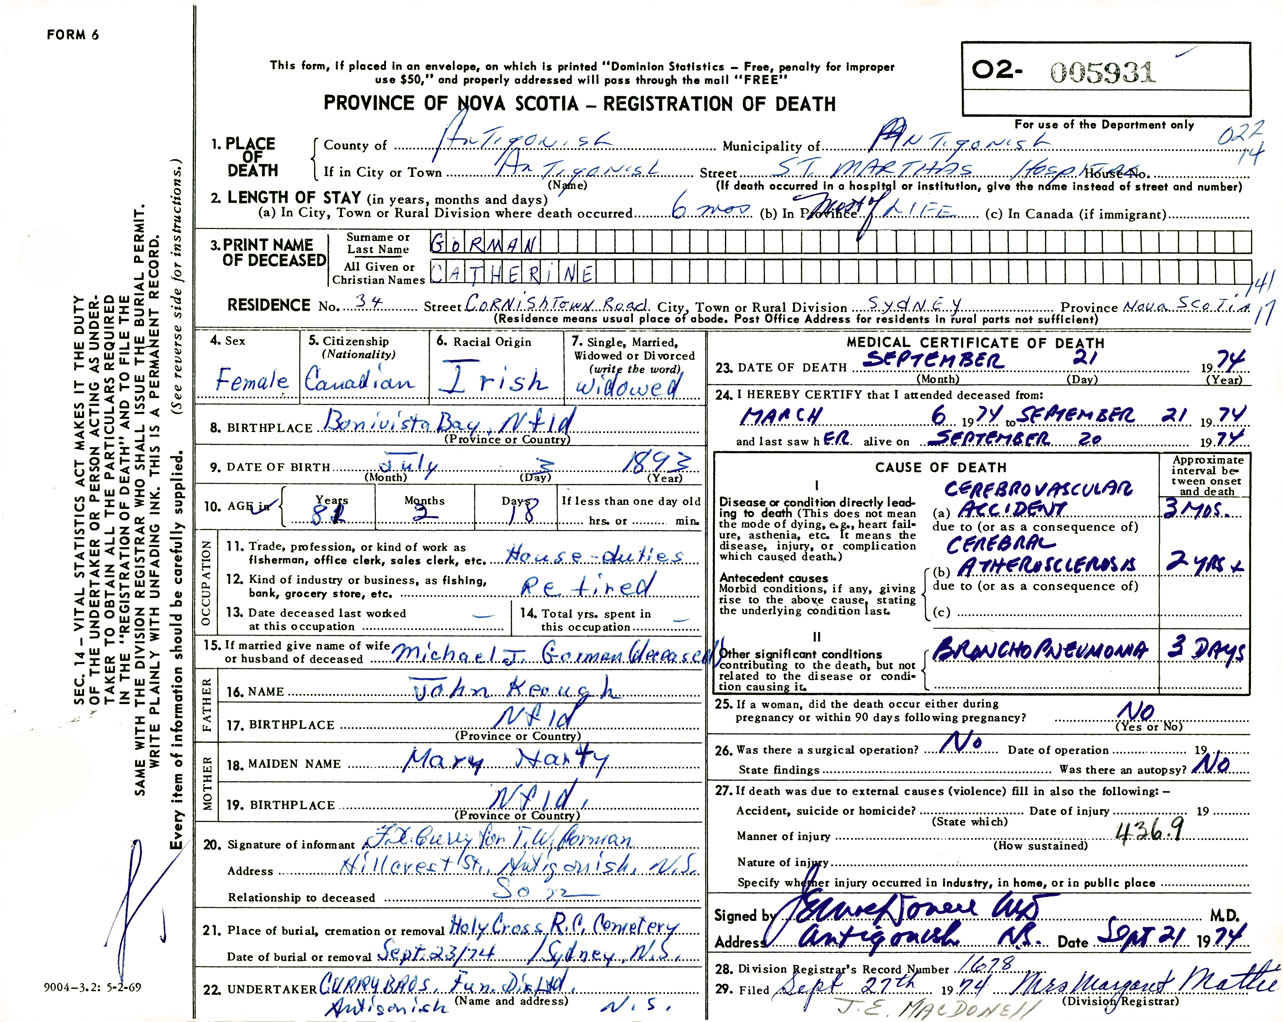 FORM 6
This form, if placed in an envelope, on which is printed "Dominion Statistics – Free, penalty for improper
use $50," and properly addressed will pass through the mail "FREE"
PROVINCE OF NOVA SCOTIA – REGISTRATION OF DEATH
O2- 005931
For use of the Department only
022
14
1. PLACE OF DEATH
County of Antigonish Municipality of Antigonish
If in City or Town Antigonish Street ST. MARTHAS Hospital House No.
(Name) (If death occurred in a hospital or institution, give the name instead of street and number)
2. LENGTH OF STAY (in years, months and days)
(a) In City, Town or Rural Division where death occurred 6 mos (b) In Province Most of LIFE (c) In Canada (if immigrant)
3. PRINT NAME OF DECEASED
Surname or Last Name GORMAN
All Given or Christian Names CATHERINE
141
17
RESIDENCE No. 34 Street CORNISHTOWN Road City, Town or Rural Division SYDNEY Province Nova Scotia
(Residence means usual place of abode. Post Office Address for residents in rural parts not sufficient)
4. Sex
Female
5. Citizenship
(Nationality)
Canadian
6. Racial Origin
Irish
7. Single, Married,
Widowed or Divorced
(write the word)
Widowed
8. BIRTHPLACE Bonivista Bay, Nfld
(Province or Country)
9. DATE OF BIRTH July 3 1893
(Month) (Day) (Year)
10. AGE in
Years Months Days If less than one day old
81 2 18 hrs. or min.
OCCUPATION
11. Trade, profession, or kind of work as
fisherman, office clerk, sales clerk, etc. House-duties
12. Kind of industry or business, as fishing,
bank, grocery store, etc. Retired
13. Date deceased last worked
at this occupation –
14. Total yrs. spent in
this occupation –
15. If married give name of wife
or husband of deceased Michael J. Gorman (deceased)
FATHER
16. NAME John Keough
17. BIRTHPLACE Nfld
(Province or Country)
MOTHER
18. MAIDEN NAME Mary Harty
19. BIRTHPLACE Nfld.
(Province or Country)
20. Signature of informant F.X. Curry for T.W. Gorman
Address Hillcrest St., Antigonish, N.S.
Relationship to deceased Son
21. Place of burial, cremation or removal Holy Cross R.C. Cemetery
Date of burial or removal Sept. 23/74 / Sydney, N.S.
22. UNDERTAKER CURRY BROS. Fun. Dir. Ltd
(Name and address)
Antigonish N.S.
MEDICAL CERTIFICATE OF DEATH
23. DATE OF DEATH SEPTEMBER 21 1974
(Month) (Day) (Year)
24. I HEREBY CERTIFY that I attended deceased from:
MARCH 6 1974 to SEPTEMBER 21 1974
and last saw hER alive on SEPTEMBER 20 1974
CAUSE OF DEATH
Approximate
interval be-
tween onset
and death
I
Disease or condition directly lead-
ing to death (This does not mean
the mode of dying, e.g., heart fail-
ure, asthenia, etc. It means the
disease, injury, or complication
which caused death.)
CEREBROVASCULAR
(a) ACCIDENT 3 MOS.
due to (or as a consequence of)
Antecedent causes
Morbid conditions, if any, giving
rise to the above cause, stating
the underlying condition last.
CEREBRAL
(b) ATHEROSCLEROSIS 2 YRS +
due to (or as a consequence of)
(c)
II
Other significant conditions
contributing to the death, but not
related to the disease or condi-
tion causing it.
BRONCHOPNEUMONIA 3 DAYS
25. If a woman, did the death occur either during
pregnancy or within 90 days following pregnancy? NO
(Yes or No)
26. Was there a surgical operation? No Date of operation 19
State findings Was there an autopsy? No
27. If death was due to external causes (violence) fill in also the following: –
Accident, suicide or homicide? Date of injury 19
(State which)
Manner of injury 436.9
(How sustained)
Nature of injury
Specify whether injury occurred in industry, in home, or in public place
Signed by M.D.
Address Antigonish N.S. Date Sept 21 1974
28. Division Registrar's Record Number 1678
29. Filed Sept 27th 1974 Mrs Margaret Mattie
(Division Registrar)
J.E. MACDONELL
SEC. 14 – VITAL STATISTICS ACT MAKES IT THE DUTY
OF THE UNDERTAKER OR PERSON ACTING AS UNDER-
TAKER TO OBTAIN ALL THE PARTICULARS REQUIRED
IN THE "REGISTRATION OF DEATH" AND TO FILE THE
SAME WITH THE DIVISION REGISTRAR WHO SHALL ISSUE THE BURIAL PERMIT.
WRITE PLAINLY WITH UNFADING INK. THIS IS A PERMANENT RECORD.
Every item of information should be carefully supplied. (See reverse side for instructions.)
9004–3.2: 5-2-69